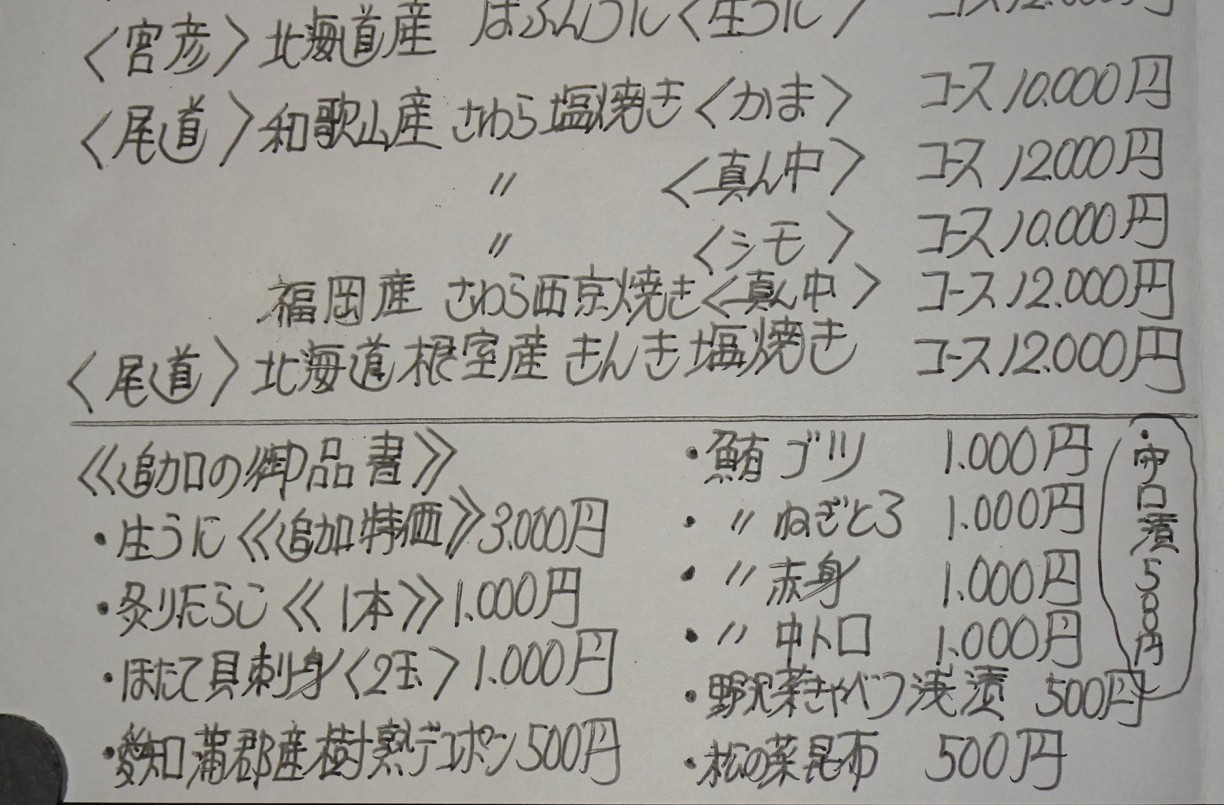 〈宮彦〉北海道産 ばふんうに〈生うに〉 コース12.000円
〈尾道〉和歌山産 さわら塩焼き〈かま〉 コース10.000円
〃 〈真ん中〉 コース12.000円
〃 〈シモ〉 コース10.000円
福岡産 さわら西京焼き〈真ん中〉 コース12.000円
〈尾道〉北海道根室産 きんき塩焼き コース12.000円
《追加の御品書》
・生うに《追加特価》3.000円
・炙りたらこ《1本》1.000円
・ほたて貝刺身〈2玉〉1.000円
・愛知蒲郡産樹熟デコポン500円
・鮪ブツ 1.000円
・〃ねぎとろ 1.000円
・〃赤身 1.000円
・〃中トロ 1.000円
・野沢菜きゃべつ浅漬 500円
・松の葉昆布 500円
口漬500円